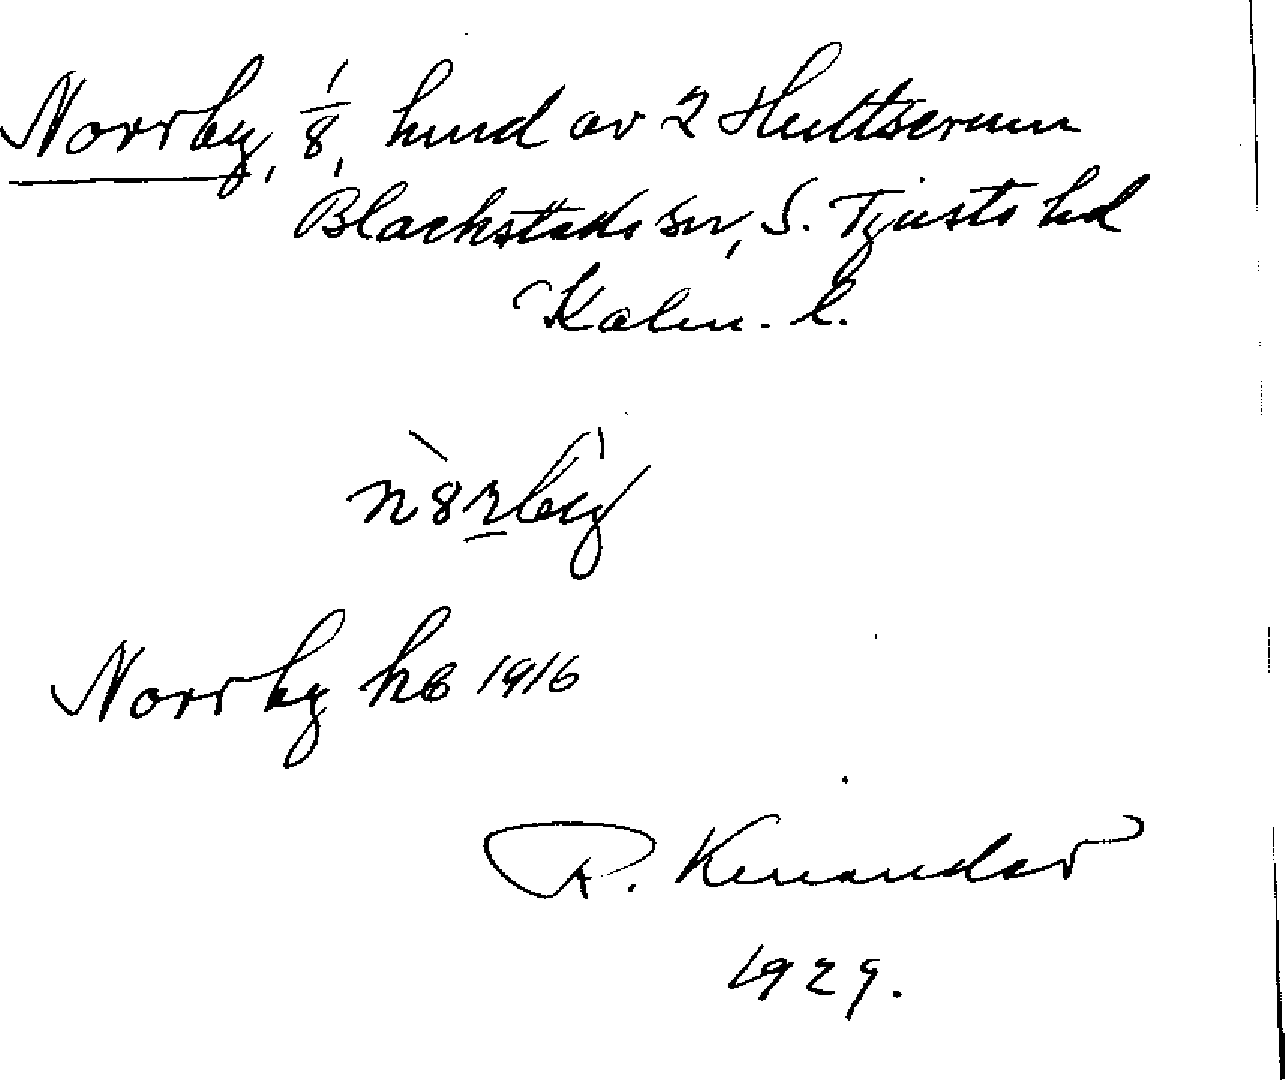 Norrby, 1/8, hmd av 2 Hultserum
Blackstads sn, S. Tjusts hd
Kalm. l.
n`8rbý
Norrby hb 1916
R. Kenander
1929.